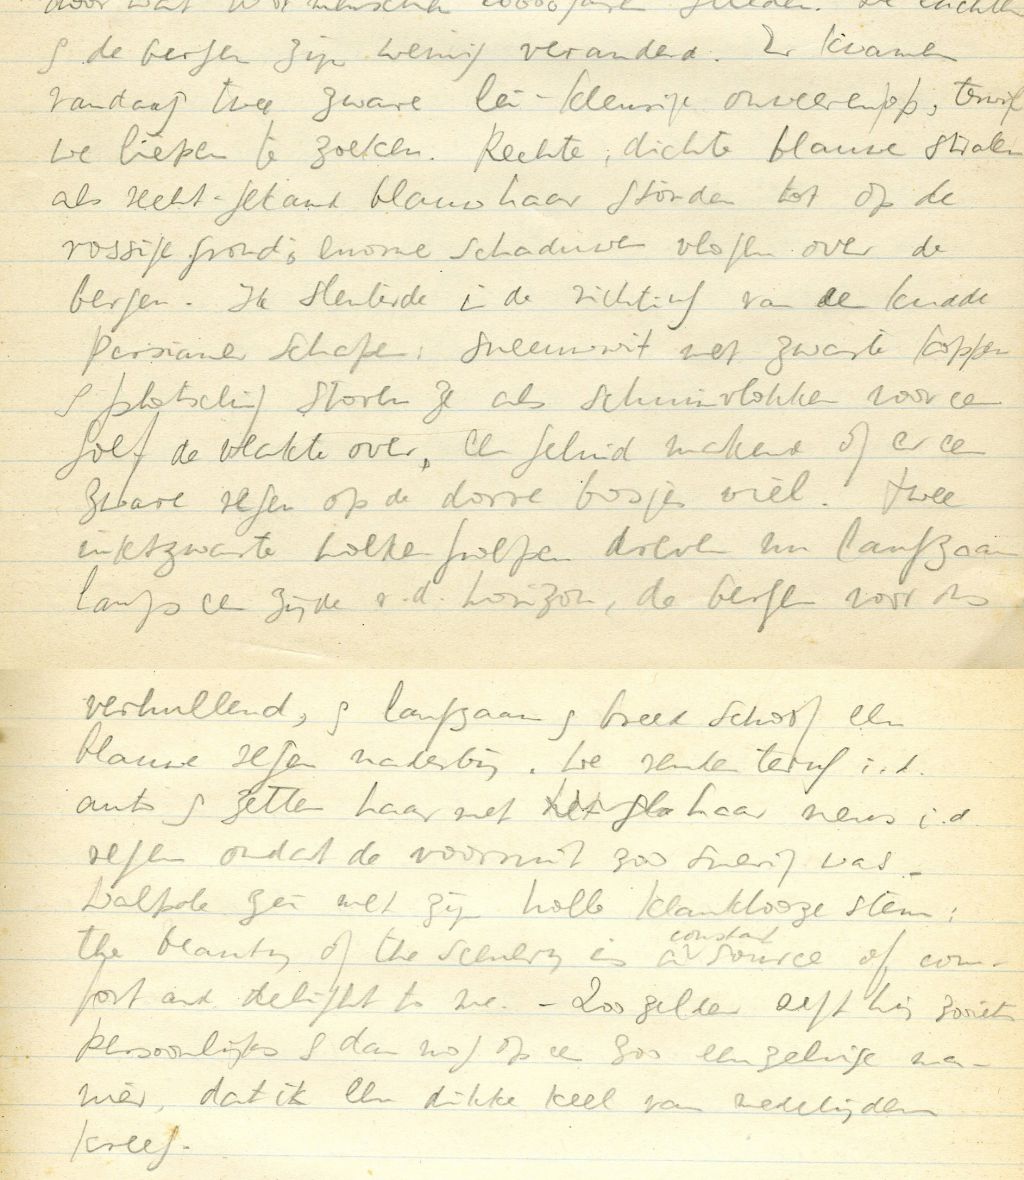 door wat voor menschen 10000 jaren geleden. De luchten
& de bergen zijn weinig veranderd. Er kwamen
vandaag twee zware lei-kleurige onweeren op, terwijl
we liepen te zoeken. Rechte, dichte blauwe stralen
als recht-gekamd blauw haar stonden tot op de
rossige grond; enorme schaduwen vlogen over de
bergen. Ik slenterde in de richting van een kudde
Persianer schapen: sneeuwwit met zwarte koppen
& plotseling stoven ze als schuimvlokken voor een
golf de vlakte over, een geluid makend of er een
zware regen op de dorre bosjes viel. Twee
inktzwarte wolken hielpen dreven nu langzaam
langs een zijde v.d. horizon, de bergen voor ons
verhullend, & langzaam & breed schoof een
blauwe regen naderbij. We renden terug i.d.
auto & zetten haar met haar neus i.d.
regen omdat de voorruit zoo smerig was.
Walpole zei met zijn holle klanklooze stem:
the beauty of the scenery is a constant source of com-
fort and delight to me. - Zoo zelden zegt hij zooiets
persoonlijks & dan nog op een zoo eenzelvige ma-
nier, dat ik een dikke keel van medelijden
kreeg.